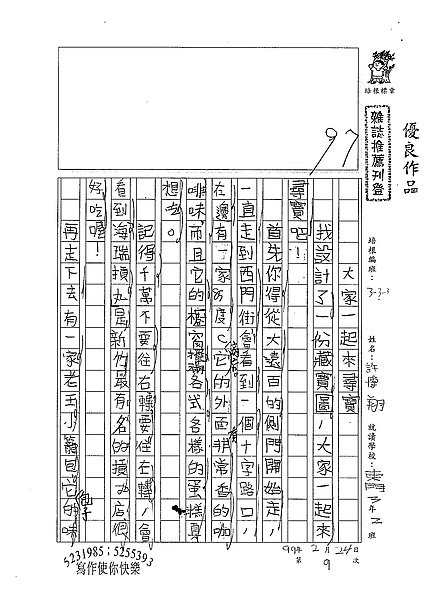 優良作品
雜誌推薦刊登
培根標章
培根編班：3-3-2
姓名：許
就讀學校：東門3年2班
99年2月24日
第9次
97
大家一起來尋寶
我設計了一份藏寶圖，大家一起來
尋寶吧！
首先你得從大遠百的側門開始走，
一直走到西門街會看到一個十字路口，
在邊有一家85度C它的外面非常香的咖
啡味，而且它的櫥窗擺各式各樣的蛋糕真
想吃。
記得千萬不要往右轉要往左轉，會
看到海瑞摃丸是新竹最有名的摃丸店很
好吃喔！
再走下去有一家老王小籠包它的味
包子
5231985；5255393
寫作使你快樂